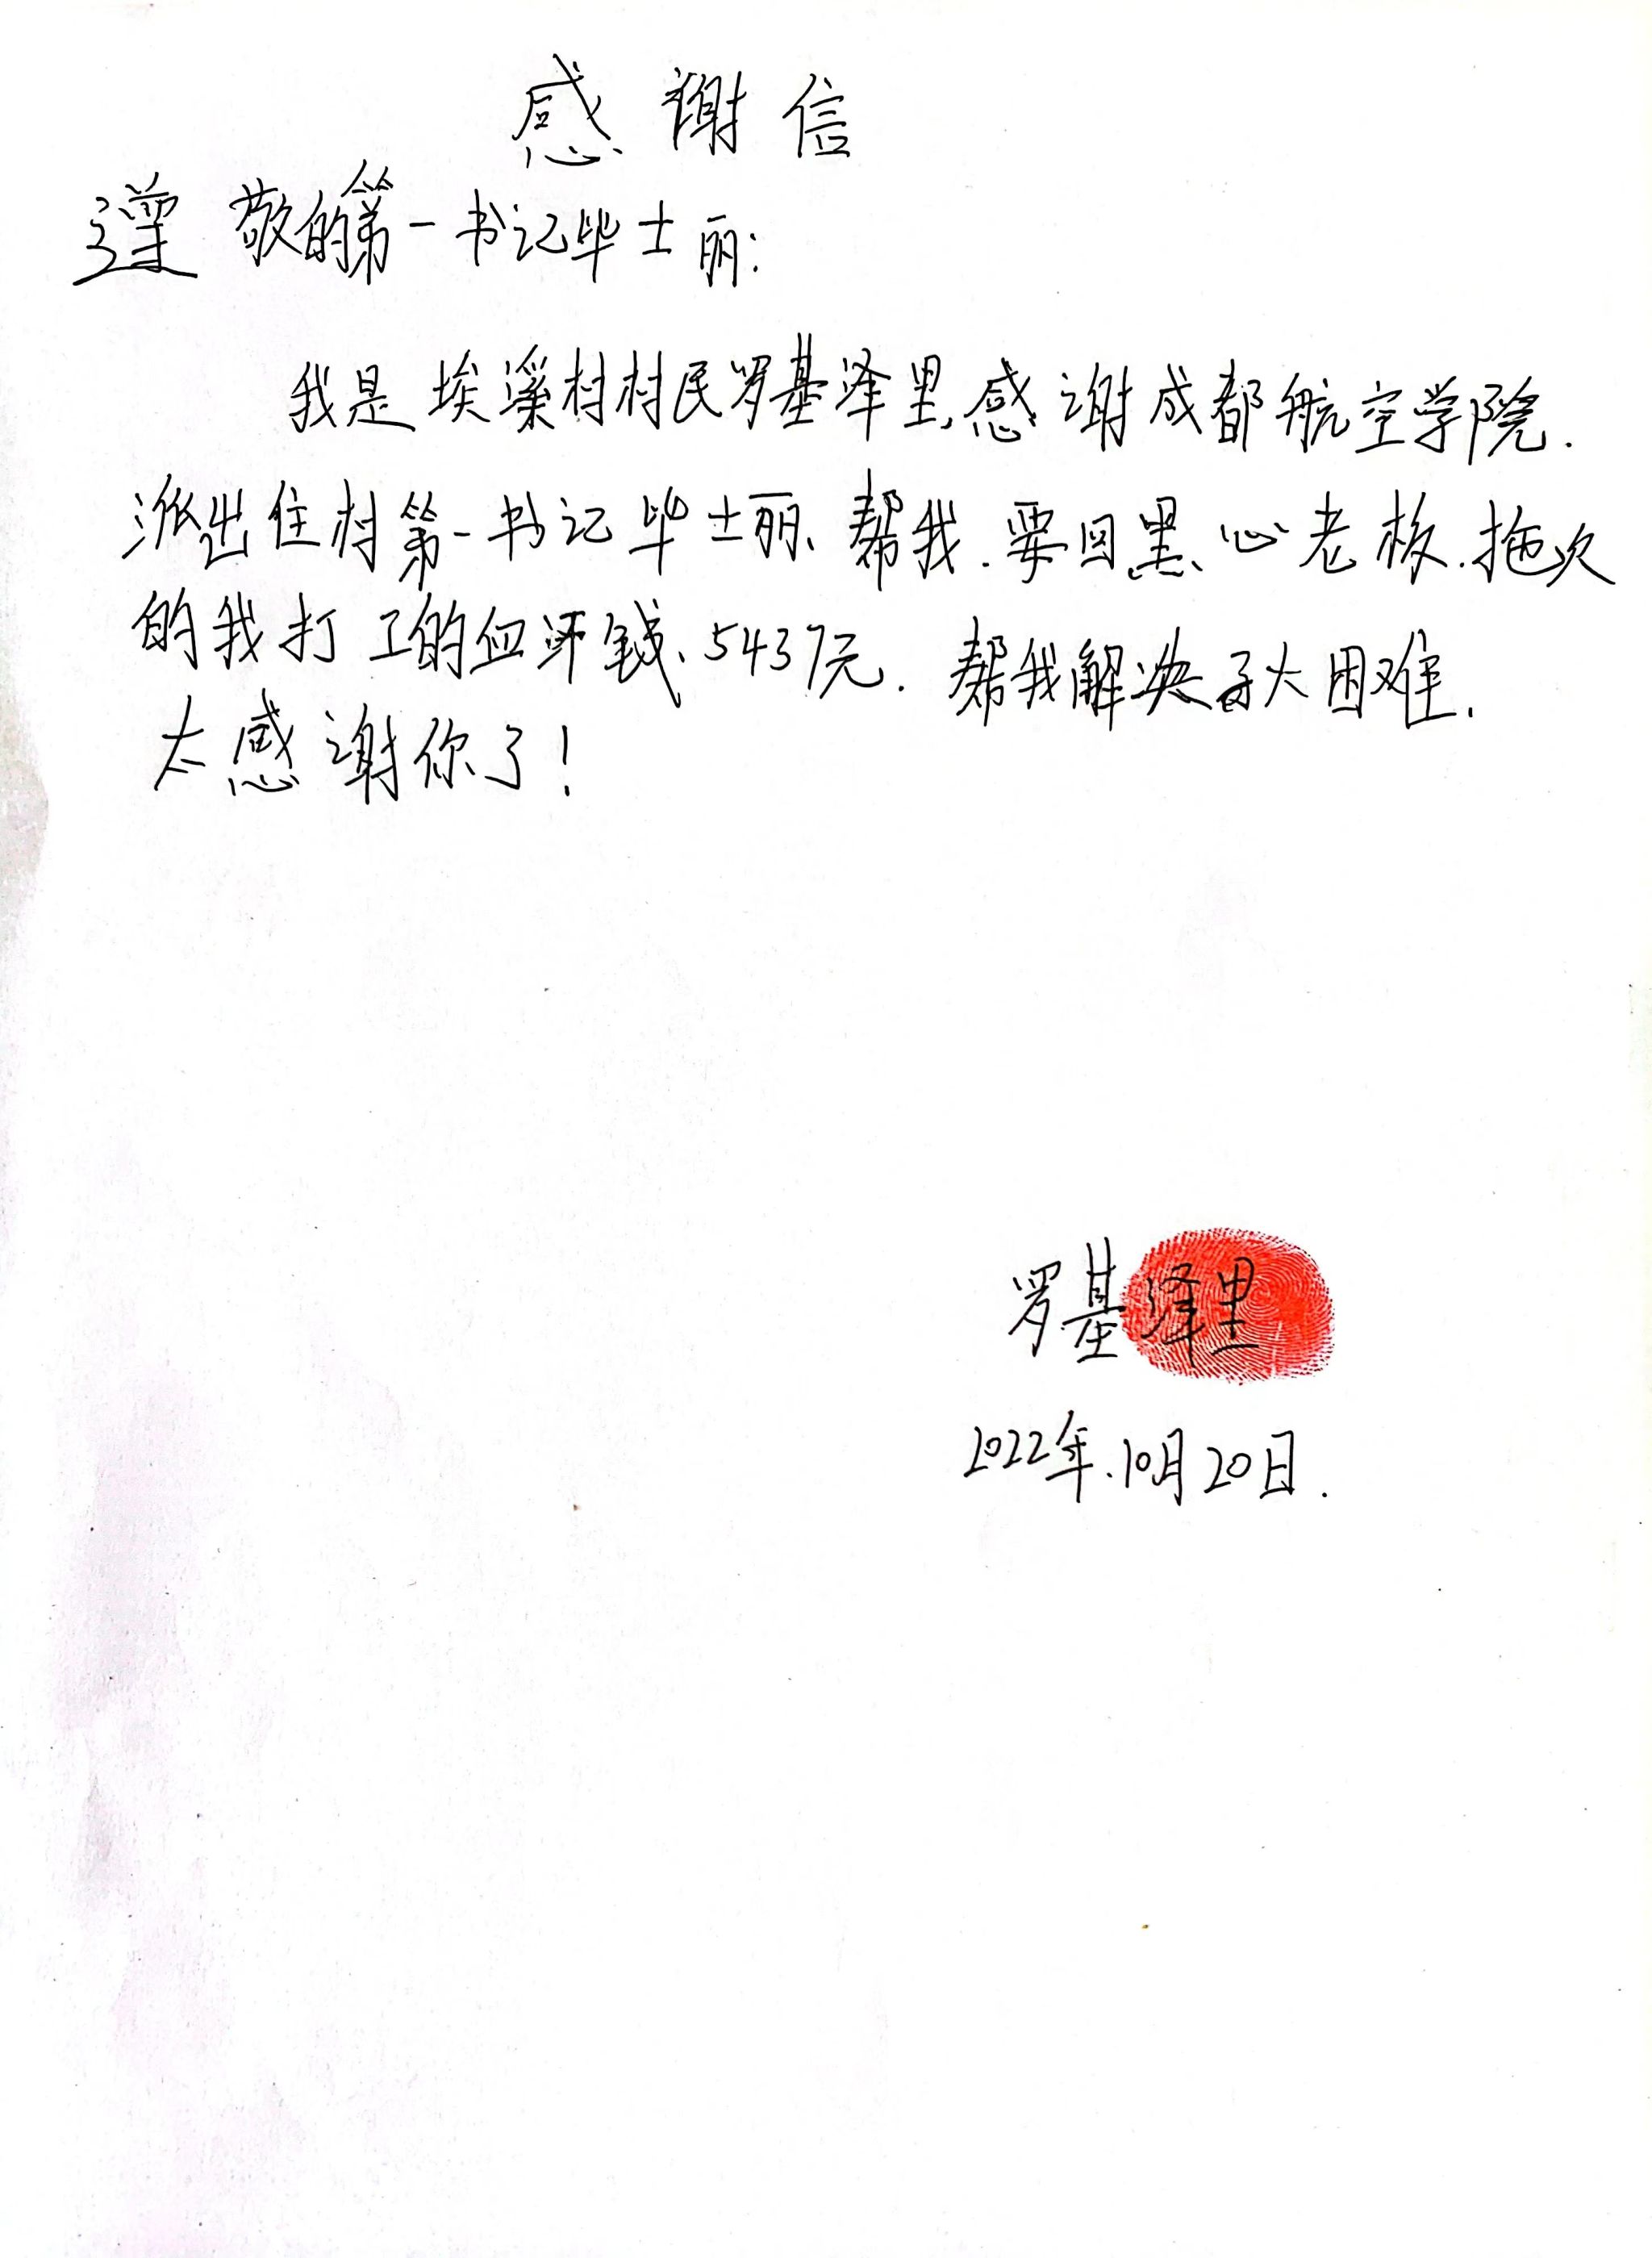 感谢信
遵敬的第一书记毕士丽:
我是埃溪村村民罗基泽里,感谢成都航空学院.
派出住村第一书记毕士丽、帮我.要回黑心老板.拖欠
的我打工的血汗钱、5437元.帮我解决了大困难.
太感谢你了!
罗基泽里
2022年.10月20日.